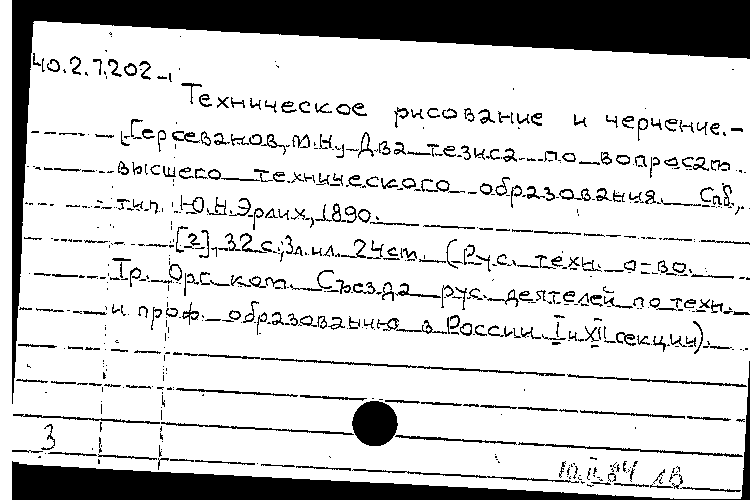 40.2.7.202-1
Техническое рисование и черчение.-
[Герсеванов, М.Н. Два тезиса по вопросам
высшего технического образования. Спб.,
тип. Ю.Н.Эрлих, 1890.
[2], 32 с.; 3 л. ил. 24 см. (Рус. техн. о-во.
Тр. Орг. ком. Съезда рус. деятелей по техн.
и проф. образованию в России I и XII секции).
3
10.II.84 1В